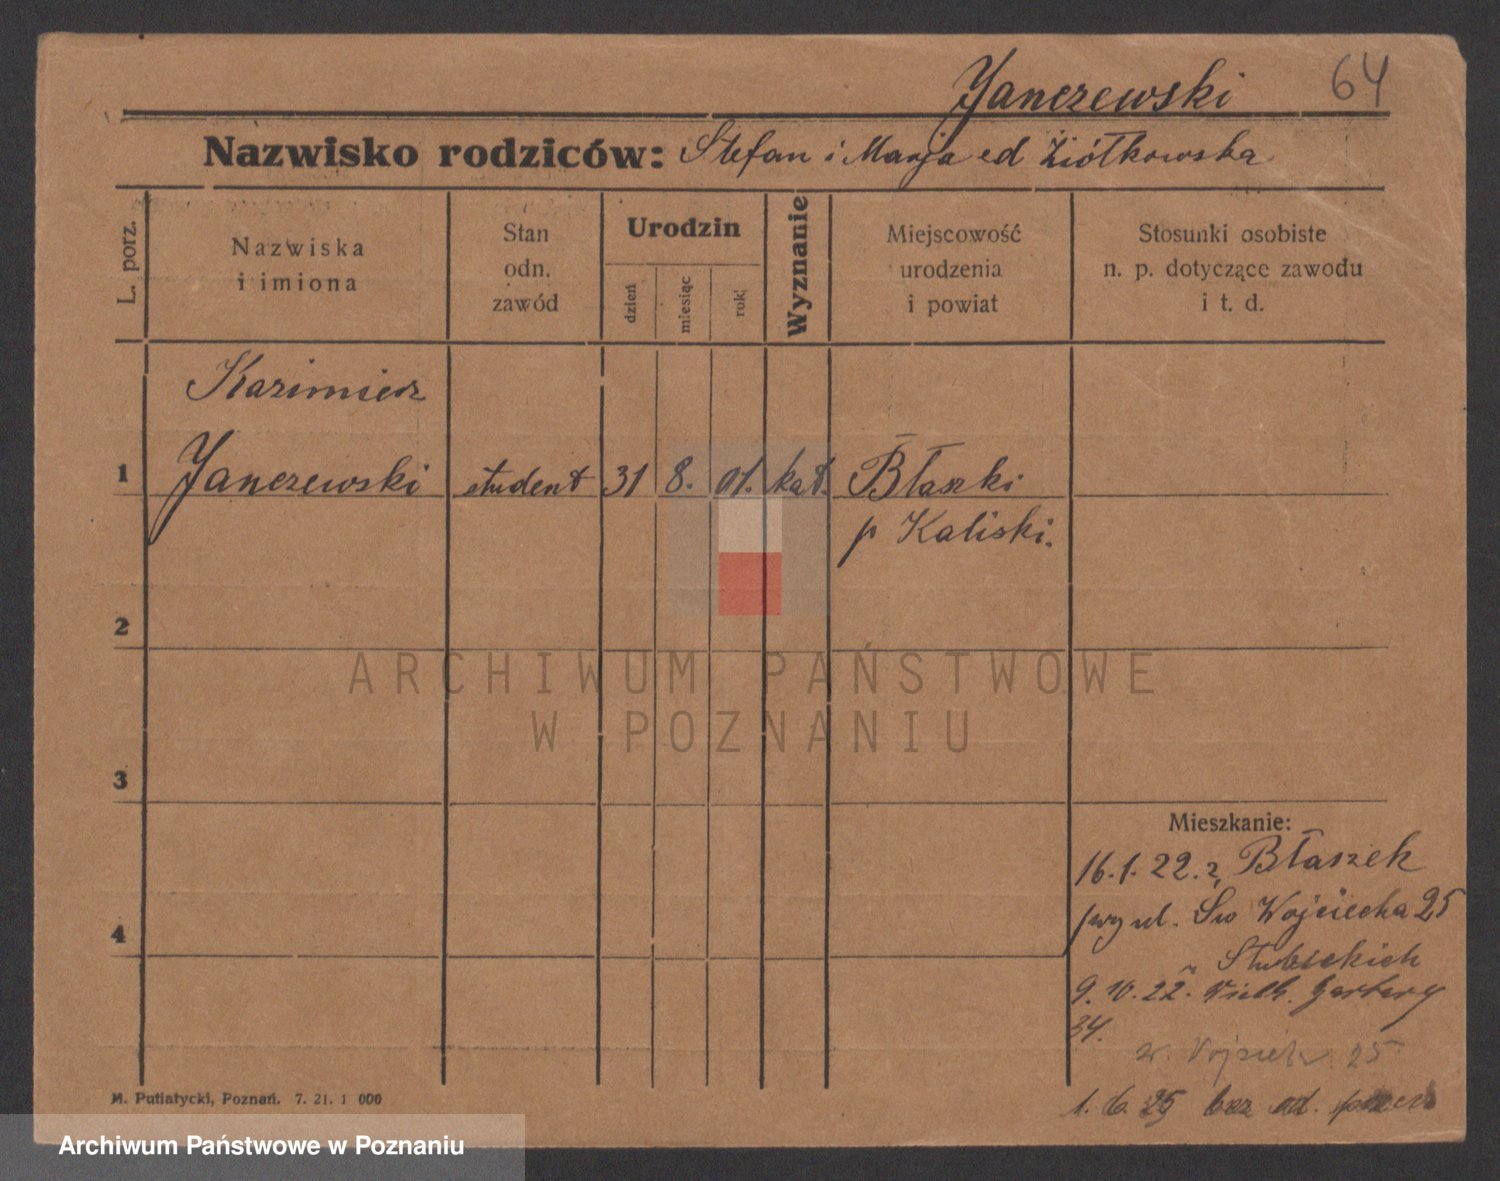 Janczewski 64
Nazwisko rodziców: Stefan i Marja Ziółkowska
L. porz.
Nazwiska
i imiona
Stan
odn.
zawód
Urodzin
dzień
miesiąc
rok
Wyznanie
Miejscowość
urodzenia
i powiat
Stosunki osobiste
n. p. dotyczące zawodu
i t. d.
Kazimierz
1 Janczewski student 31 8. 01. kat. Błaszki
p Kaliski.
2
ARCHIWUM PAŃSTWOWE
W POZNANIU
3
Mieszkanie:
16.1.22. z Błaszek
przy ul. Św Wojciecha 25
4
9.10.22. Wielk. Garbary
34.
25
1.6.25 bez od.
M. Putiatycki, Poznań. 7. 21. 1 000
Archiwum Państwowe w Poznaniu